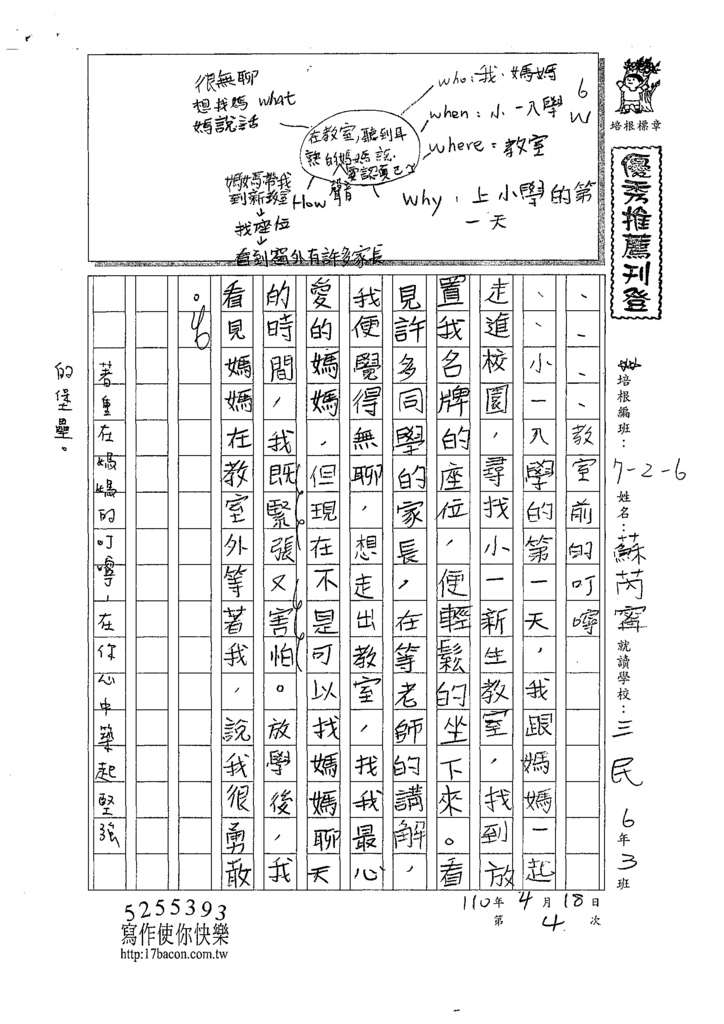 很無聊
想找媽 what
媽說話
who:我、媽媽
when:小一入學
6
W
where:教室
why:上小學的第
一天
在教室,聽到耳
熟的媽媽說
聲音
How
媽媽帶我
到新教室
↓
找座位
↓
看到窗外有許多家長
培根標章
優秀推薦刊登
培根編班: 7-2-6 姓名:蘇芮寗 就讀學校:三民 6年3班
、、、、教室前的叮嚀
、、小一入學的第一天,我跟媽媽一起
走進校園,尋找小一新生教室,找到放
置我名牌的座位,便輕鬆的坐下來。看
見許多同學的家長,在等老師的講解,
我便覺得無聊,想走出教室,找我最心
愛的媽媽,但現在不是可以找媽媽聊天
的時間,我既緊張又害怕。放學後,我
看見媽媽在教室外等著我,說我很勇敢
。
著重在媽媽的叮嚀,在你心中築起堅強
的堡壘。
110年4月18日
第4次
5255393
寫作使你快樂
http:17bacon.com.tw